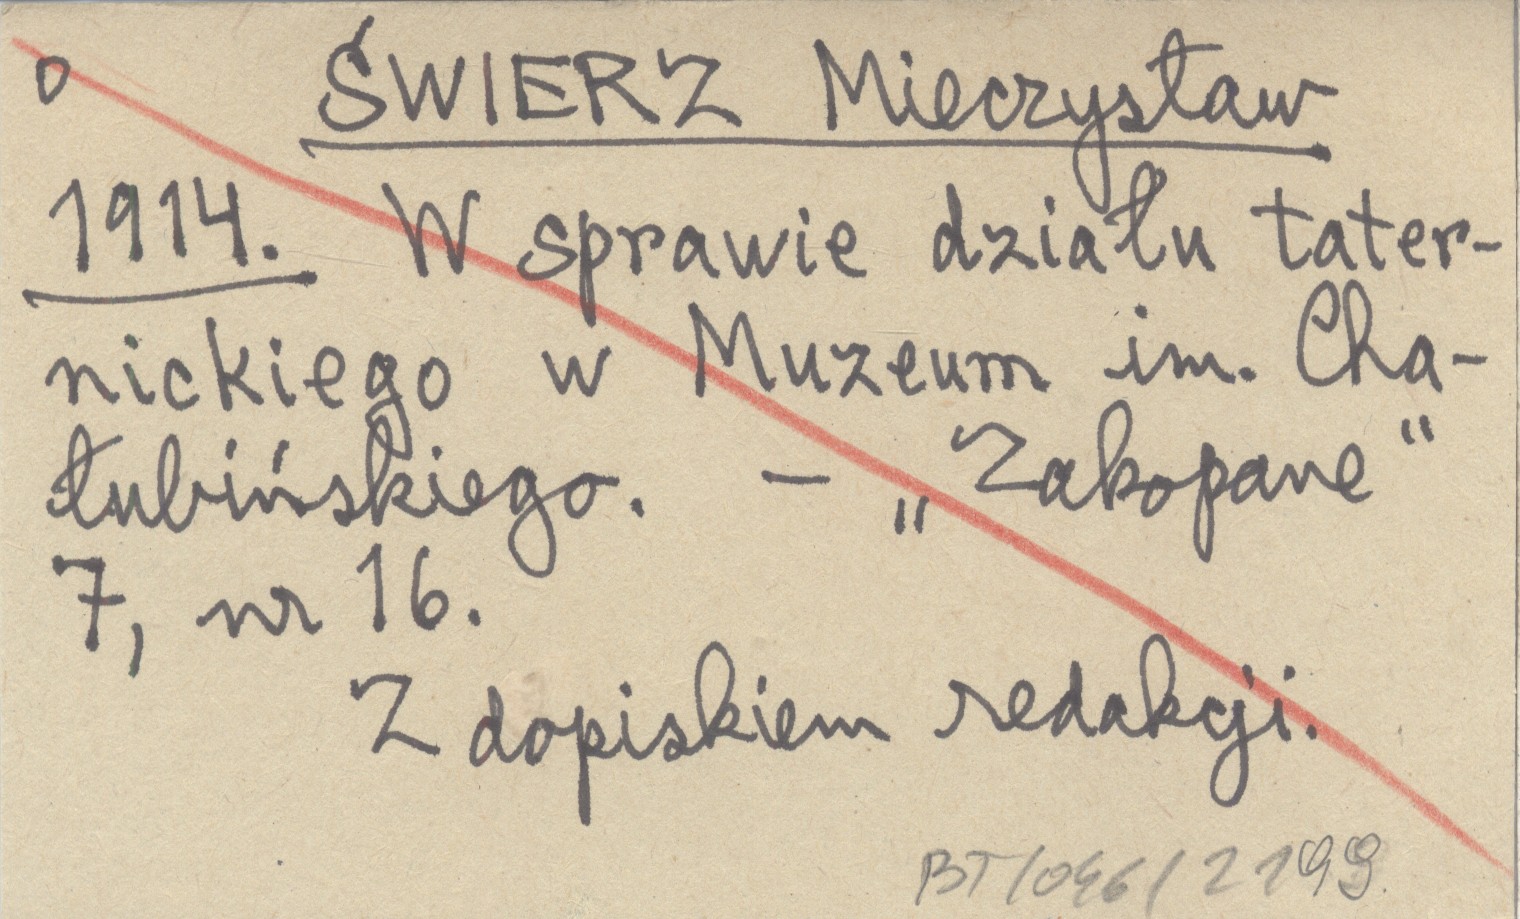 o ŚWIERZ Mieczysław
1914. W sprawie działu tater-
nickiego w Muzeum im. Cha-
łubińskiego. – „Zakopane“
7, nr 16.
Z dopiskiem redakcji.
BT/046/2199